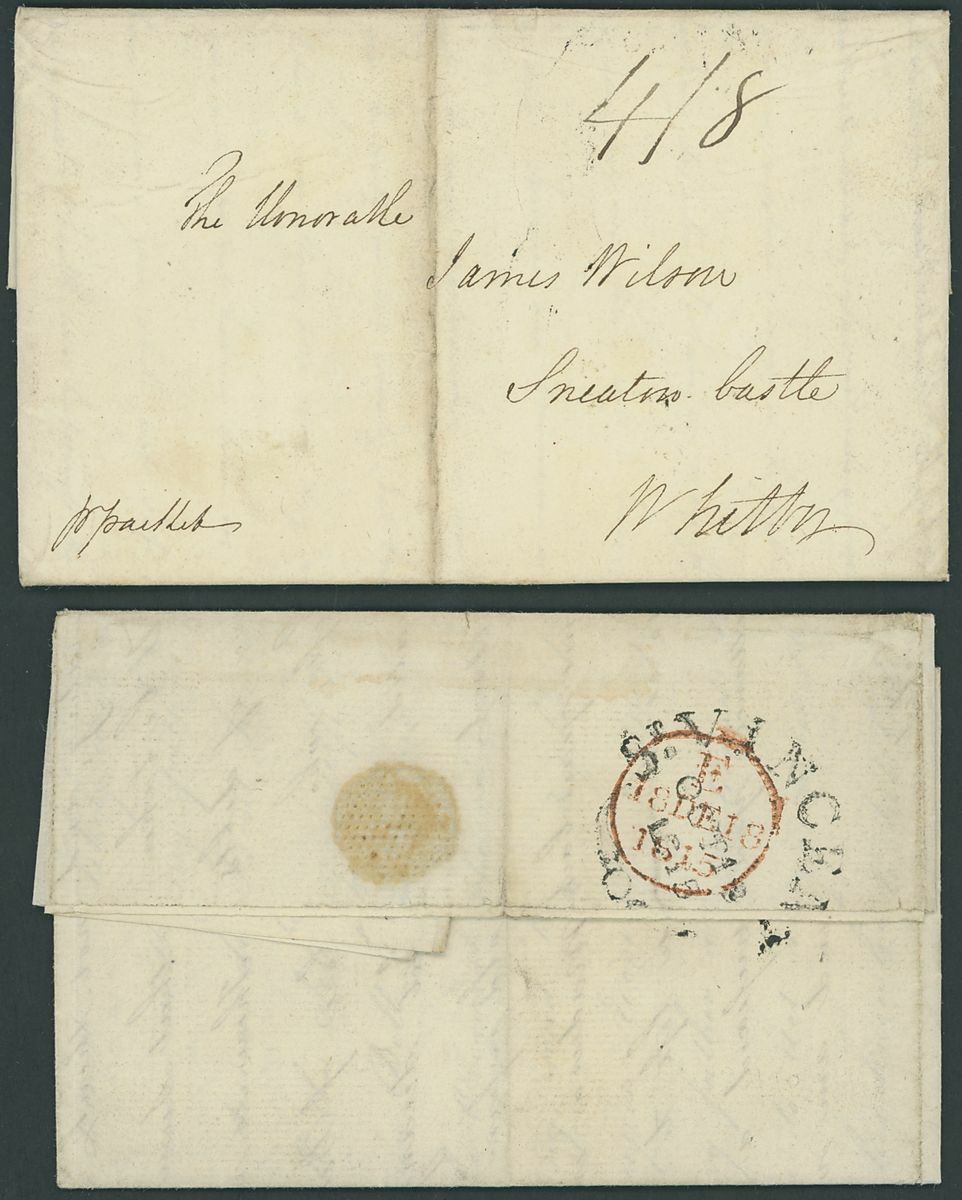 4/8
The Honorable
James Wilson
Sneaton Castle
Whitby
pr packet
St. VINCENT
E
18 DE 18
1815